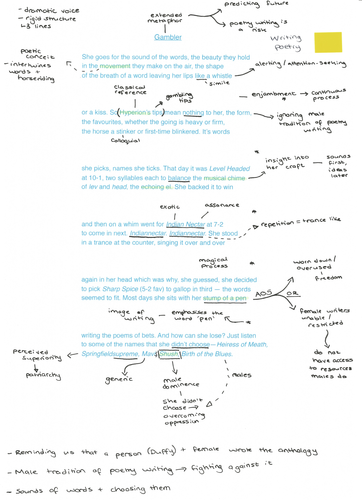 - dramatic voice
- rigid structure
- 3 lines
extended metaphor
predicting future
poetry writing is a risk
Gambler
Writing
Poetry
poetic conceit
- intertwines words + horseriding
She goes for the sound of the words, the beauty they hold
in the movement they make on the air, the shape
of the breath of a word leaving her lips like a whistle
simile
alerting/attention-seeking
classical reference
gambling tips
enjambment → continuous process
or a kiss. So Hyperion's tips mean nothing to her, the form,
the favourites, whether the going is heavy or firm,
the horse a stinker or first-time blinkered. It's words
colloquial
ignoring male tradition of poetry writing
she picks, names she ticks. That day it was Level Headed
at 10-1, two syllables each to balance the musical chime
of lev and head, the echoing el. She backed it to win
insight into her craft → sounds first, ideas later
exotic
assonance
and then on a whim went for Indian Nectar at 7-2
to come in next. Indiannectar. Indiannectar. She stood
in a trance at the counter, singing it over and over
repetition = trance like
magical process
again in her head which was why, she guessed, she decided
to pick Sharp Spice (5-2 fav) to gallop in third — the words
seemed to fit. Most days she sits with her stump of a pen
worn down/overused
freedom
OR
image of writing - emphasises the word 'pen'
female writers unable / restricted
do not have access to resources males do
writing the poems of bets. And how can she lose? Just listen
to some of the names that she didn't choose — Heiress of Meath,
Springfieldsupreme, Mavis, Shush, Birth of the Blues.
perceived superiority
patriarchy
generic
male dominence
She didn't choose → overcoming oppression
males
- Reminding us that a person (Duffy) + female wrote the anthology
- Male tradition of poetry writing → fighting against it
- Sounds of words + choosing them